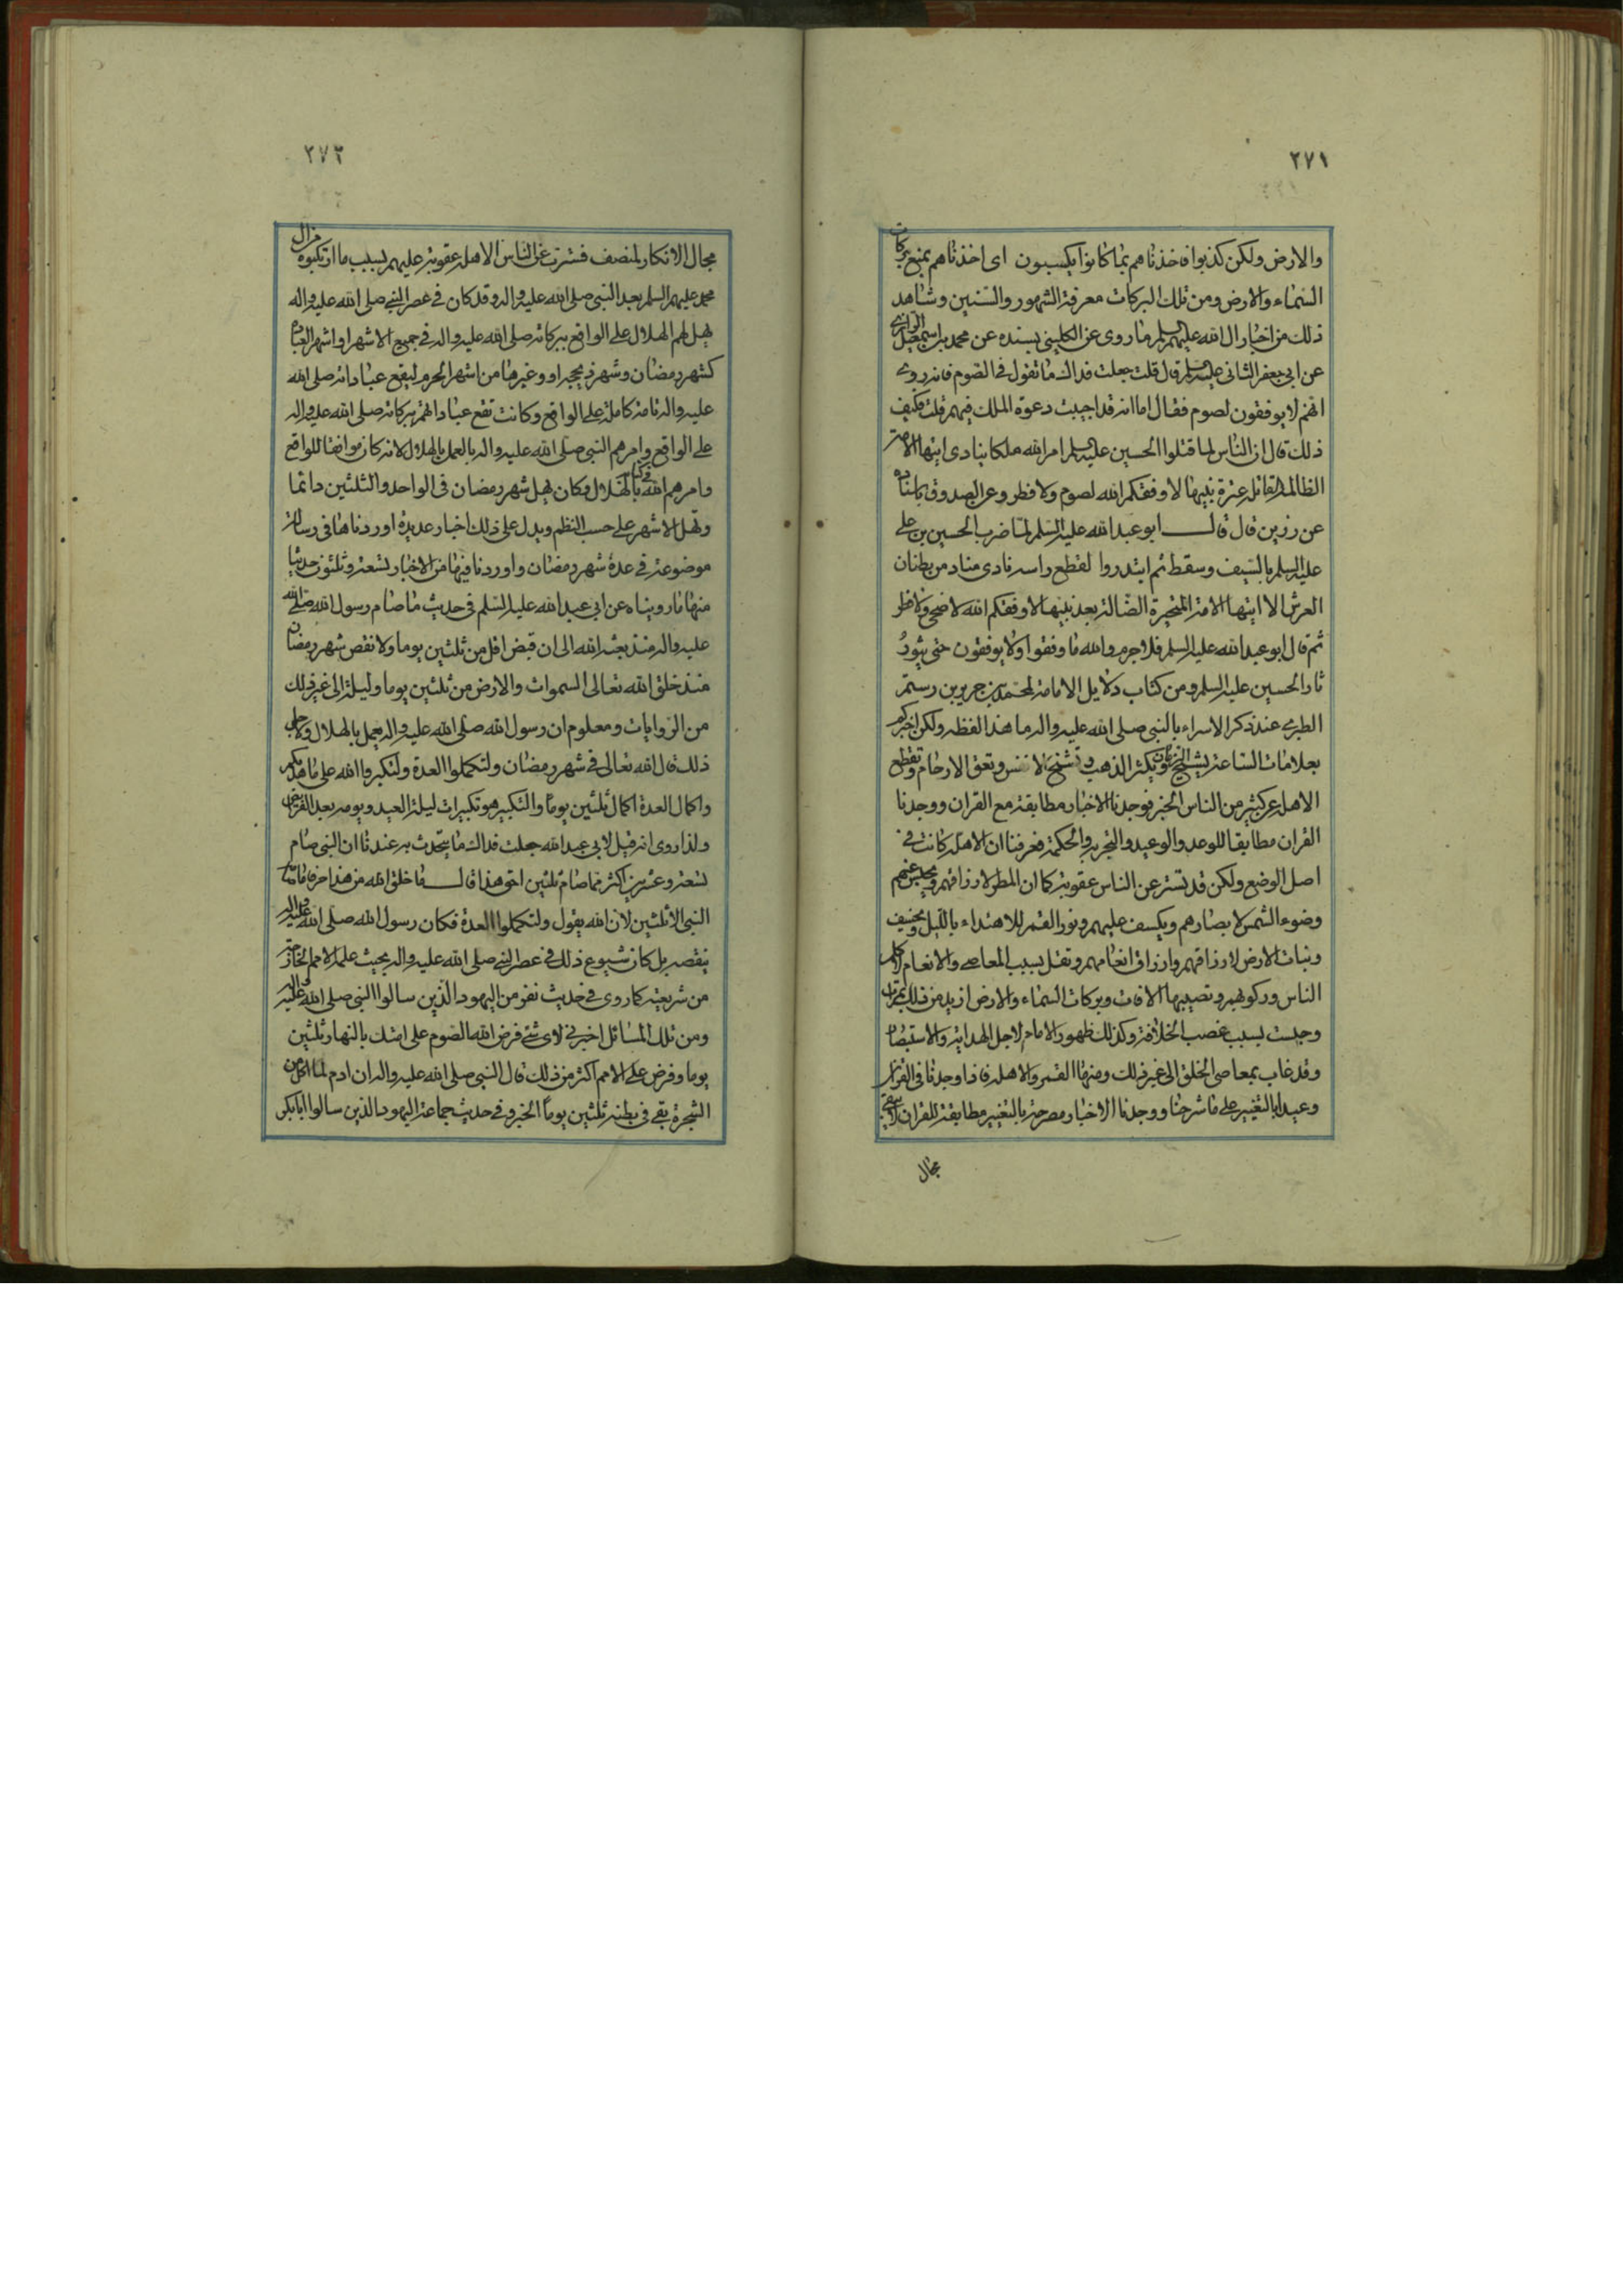 ٢٧١
والارض ولكن كذبوا فاخذناهم بما كانوا يكسبون اى اخذناهم بمنع بركات
السماء والارض ومن تلك البركات معرفة الشهور والسنين وشاهد
ذلك من اخبار ال الله عليهم السلم ما روى عن الكلينى بسنده عن محمد بن اسمعيل الرازى
عن ابى جعفر الثانى عليه السلم قال قلت جعلت فداك ما تقول فى الصوم فانه روى
انهم لا يوفقون لصوم فقال اما انه قد اجيبت دعوة الملك فيهم قلت فكيف
ذلك قال ان الناس لما قتلوا الحسين عليه السلم امر الله ملكا ينادى ايتها الامة
الظالمة القاتلة عترة نبيها لا وفقكم الله لصوم ولا فطر وعن الصدوق باسناده
عن رزين قال قال ابو عبد الله عليه السلم لما ضرب الحسين بن على
عليه السلم بالسيف وسقط ثم ابتدروا لقطع راسه نادى مناد من بطنان
العرش الا ايتها الامة المتحيرة الضالة بعد نبيها لا وفقكم الله لاضحى ولا فطر
ثم قال ابو عبد الله عليه السلم فلا جرم والله ما وفقوا ولا يوفقون حتى يثور
ثار الحسين عليه السلم ومن كتاب دلايل الامامة لمحمد بن جرير بن رستم
الطبرى عند ذكر الاسراء بالنبى صلى الله عليه واله ما هذا لفظه ولكن اخبركم
بعلامات الساعة يشيخ الزمان ويكثر الذهب وتشح الانفس وتعق الارحام وتقطع
الاهلة عن كثير من الناس الخبر فوجدنا الاخبار مطابقة مع القران ووجدنا
القران مطابقا للوعد والوعيد والتجربة والحكمة فعرفنا ان الاهلة كانت فى
اصل الوضع ولكن قد تستر عن الناس عقوبة كما ان المطر لارزاقهم ويحبس عنهم
وضوء الشمس لابصارهم ويكسف عليهم ونور القمر للاهتداء بالليل ويخسف
ونبات الارض لارزاقهم وارزاق انعامهم وتقل بسبب المعاصى والانعام لاكل
الناس وركوبهم وتصيبها الافات وبركات السماء والارض ازيد من ذلك بمرات
وحبست بسبب غصب الخلافة وكذلك ظهور الامام لاجل الهداية والاستبصار
وقد غاب بمعاصى الخلق الى غير ذلك ومنها القمر والاهلة فاذا وجدنا فى القران
وعيدا بالتغيير على ما شرحنا ووجدنا الاخبار مصرحة بالتغيير مطابقة للقران لا يبقى
مجال
٢٧٢
مجال الانكار لمنصف فسترت عن الناس الاهلة عقوبة عليهم بسبب ما ارتكبوه من ال
محمد عليهم السلم بعد النبى صلى الله عليه واله وقد كان فى عصر النبى صلى الله عليه واله
يهل لهم الهلال على الواقع ببركاته صلى الله عليه واله فى جميع الاشهر او اشهر العبادة
كشهر رمضان وشهر ذيحجة او وغيرها من اشهر الحرم ليقع عباداته صلى الله
عليه واله تامة كاملة على الواقع وكانت تقع عباداتهم ببركاته صلى الله عليه واله
على الواقع وامرهم النبى صلى الله عليه واله بالعمل بالهلال لانه كان موافقا للواقع
وامرهم الله فى كتابه بالهلال وكان يهل شهر رمضان فى الواحد والثلثين دائما
وتهل الاشهر على حسب النظم ويدل على ذلك اخبار عديدة اوردناها فى رسالة
موضوعة فى عدة شهر رمضان واوردنا فيها من الاخبار تسعة وثلثون حديثا
منها ما رويناه عن ابى عبد الله عليه السلم فى حديث ما صام رسول الله صلى الله
عليه واله منذ بعثه الله الى ان قبض اقل من ثلثين يوما ولا نقص شهر رمضان
منذ خلق الله تعالى السموات والارض من ثلثين يوما وليلة الى غير ذلك
من الروايات ومعلوم ان رسول الله صلى الله عليه واله يعمل بالهلال ولاجل
ذلك قال الله تعالى فى شهر رمضان ولتكملوا العدة ولتكبروا الله على ما هديكم
واكمال العدة اكمال ثلثين يوما والتكبير هو تكبيرات ليلة العيد ويومه بعد الفرايض
ولذا روى انه قيل لابى عبد الله جعلت فداك ما يتحدث به عندنا ان النبى صام
تسعة وعشرين اكثر مما صام ثلثين احق هذا قال ما خلق الله من هذا حرفا ما صام
النبى الا ثلثين لان الله يقول ولتكملوا العدة فكان رسول الله صلى الله عليه واله
ينقصه بل كان شيوع ذلك فى عصر النبى صلى الله عليه واله بحيث علمه الامم الخارجة
من شريعته كما روى فى حديث نفر من اليهود الذين سالوا النبى صلى الله عليه واله
ومن تلك المسائل اخبرنى لاى شئ فرض الله الصوم على امتك بالنهار ثلثين
يوما وفرض على الامم اكثر من ذلك قال النبى صلى الله عليه واله ان ادم لما اكل من
الشجرة بقى فى بطنه ثلثين يوما الخبر وفى حديث جماعة اليهود الذين سالوا ابابكر